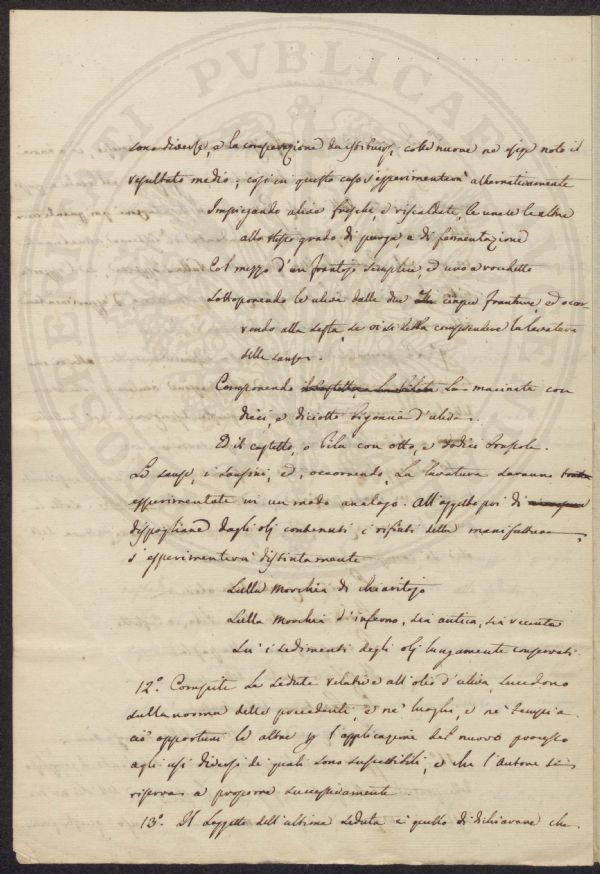 sono diverse, e la composizione da istituirsi, colle nuove ne esige noto il
resultato medio; così in questo caso s'esperimenterà alternativamente
Impiegando ulive fresche, e riscaldate, le une e le altre
allo stesso grado di purga, e di fermentazione
Col mezzo d'un frantojo semplice, ed uno a rocchetto
Sottoponendo le ulive dalle due alle cinque franture, ed occor-
rendo alla sesta, se vi si debba comprendere la lavatura
delle sanse.
Componendo la macinata con
dieci, e diciotto bigoncia d'ulive.
Ed il castello, o Pila con otto, e dodici bruscole.
Le sanse, i sansini, ed, occorrendo, la lavatura saranno
esperimentate in un modo analogo. All'oggetto poi di
dispogliare dagli olj contenuti, i rifiuti della manifattura
s'esperimenterà distintamente
Sulla morchia di chiaritojo
Sulla morchia d'inferno, sia antica, sia recente
Su' i sedimenti degli olj lungamente conservati.
12.° Compite le sedute relative all'olio d'uliva, succedono
sulla norma delle precedenti, e ne' luoghi, e ne' tempi a
ciò opportuni le altre p l'applicazione del nuovo processo
agli usi diversi de' quali sono suscettibili, e che l'autore si
riserva a proporre successivamente.
13.° Il soggetto dell'ultima seduta è quello di dichiarare che